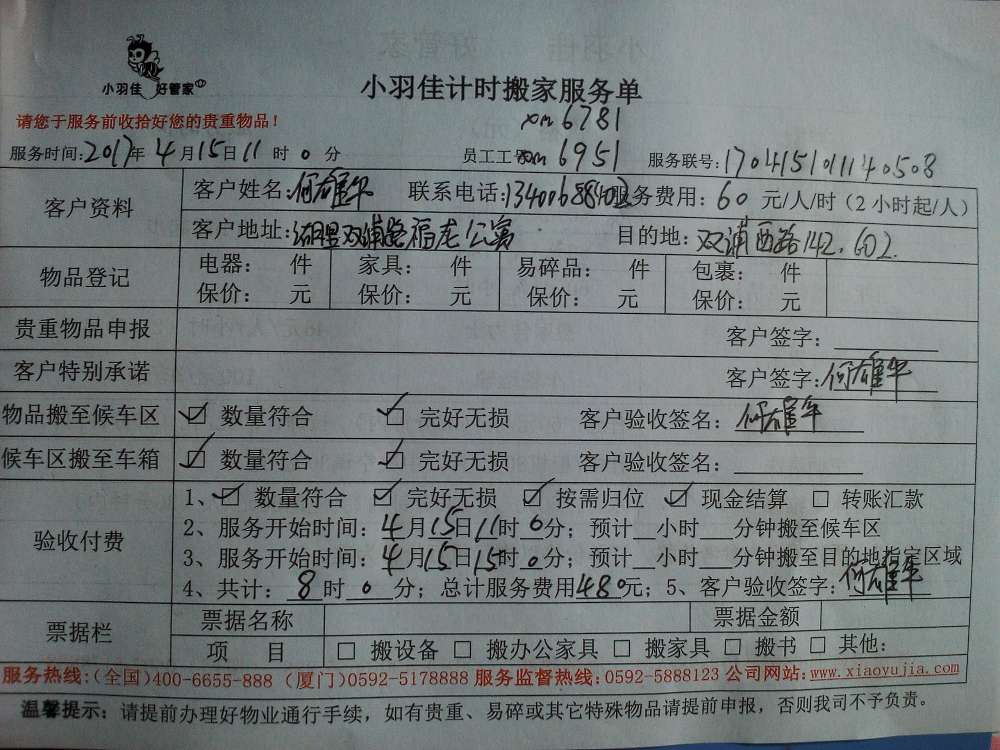 小羽佳 好管家
小羽佳计时搬家服务单
请您于服务前收拾好您的贵重物品！
xm6781
服务时间：2017年4月15日11时0分 员工工号：xm6951 服务联号：170415101140508
客户资料 客户姓名：何雄华 联系电话：13400688402 服务费用：60元/人/时（2小时起/人）
客户地址：湖里双浦路福龙公寓 目的地：双浦西路142.602.
物品登记 电器： 件 家具： 件 易碎品： 件 包裹： 件
保价： 元 保价： 元 保价： 元 保价： 元
贵重物品申报 客户签字：
客户特别承诺 客户签字：何雄华
物品搬至候车区 ☑ 数量符合 ☑ 完好无损 客户验收签名：何雄华
候车区搬至车箱 ☑ 数量符合 ☑ 完好无损 客户验收签名：
验收付费 1、☑ 数量符合 ☑ 完好无损 ☑ 按需归位 ☑ 现金结算 □ 转账汇款
2、服务开始时间：4月15日11时0分；预计__小时___分钟搬至候车区
3、服务开始时间：4月15日15时0分；预计__小时___分钟搬至目的地指定区域
4、共计：8时0分；总计服务费用480元；5、客户验收签字：何雄华
票据栏 票据名称 票据金额
项 目 □ 搬设备 □ 搬办公家具 □ 搬家具 □ 搬书 □ 其他：
服务热线：(全国)400-6655-888 (厦门)0592-5178888 服务监督热线：0592-5888123 公司网站：www.xiaoyujia.com
温馨提示：请提前办理好物业通行手续，如有贵重、易碎或其它特殊物品请提前申报，否则我司不予负责。